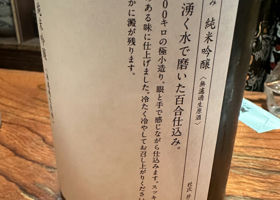 み 純米吟醸〈無濾過生原酒〉
湧く水で磨いた百合仕込み。
00キロの極小造り。眼と手で感じながら仕込みます。スッキ
ある味に仕上げました。冷たく冷やしてお召し上がりください
かに澱が残ります。